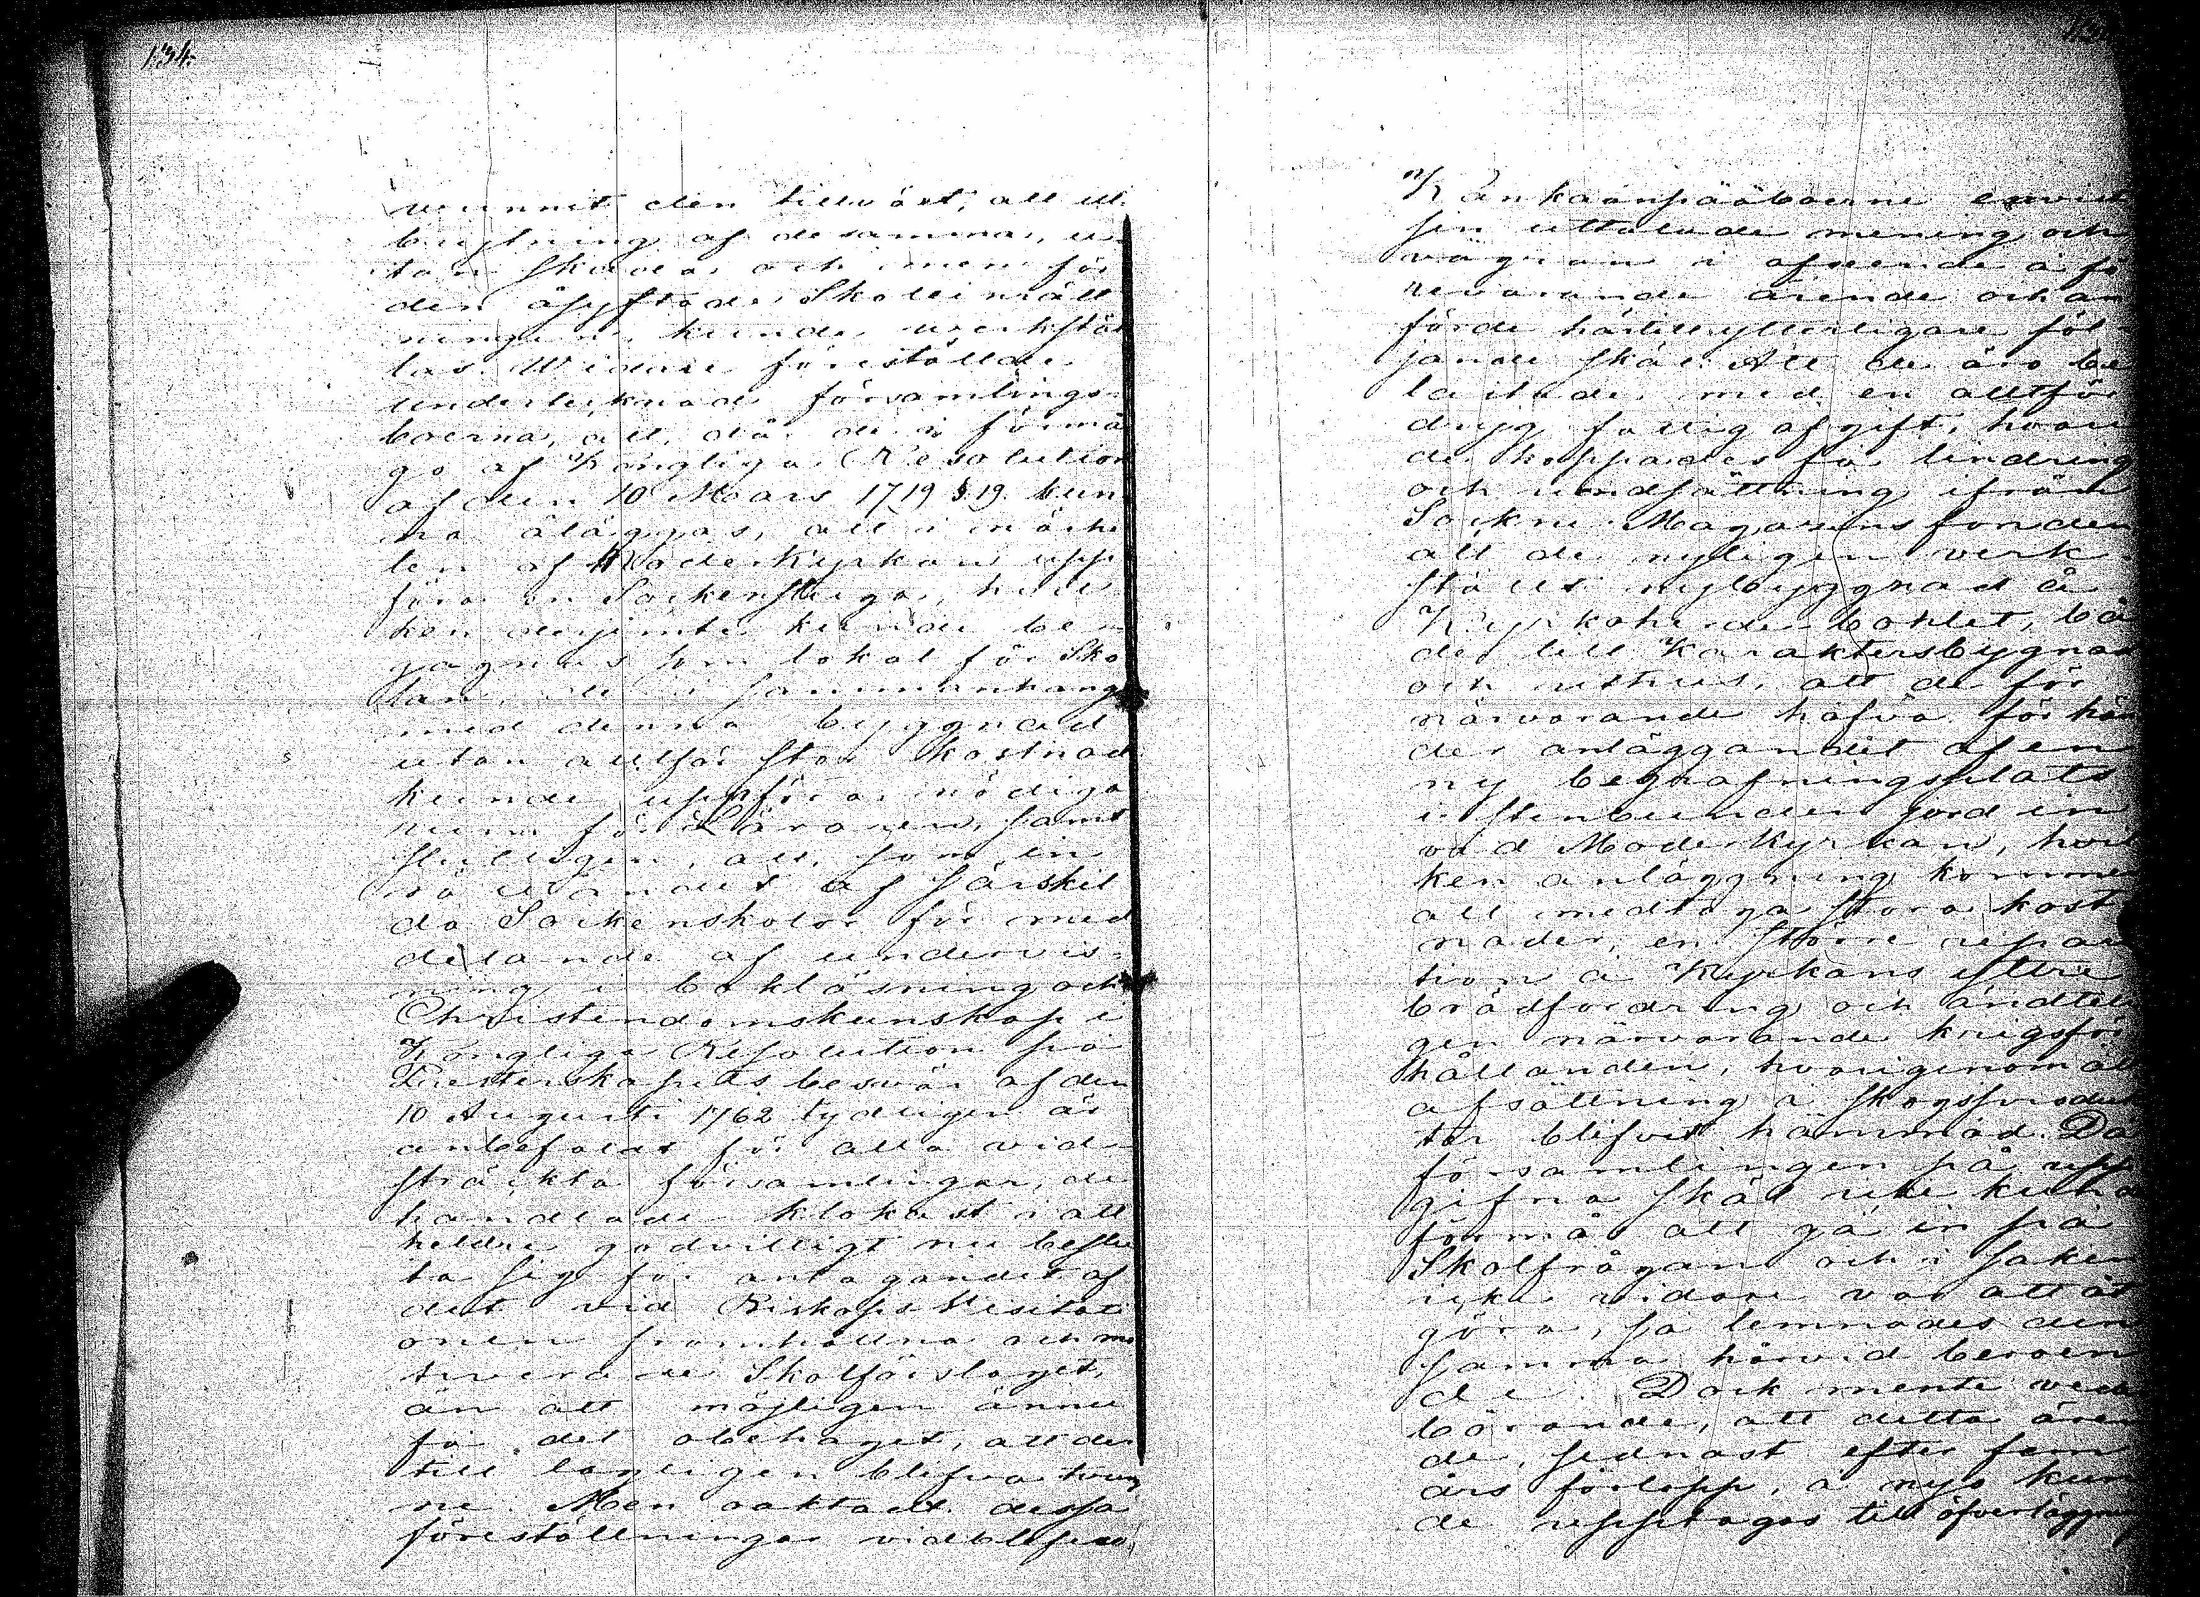 134.
vunnit den tillväxt, att ut-
brytning af desamma, u-
tan skada och men för
den åsyftade Skolinrätt
ningen, kunde verkstäl
las. Widare föreställde
undertecknad församlings-
boerna, att, då de i förmå
go af Kongliga Resolution
af den 10 Mars 1719 § 19 kun
na åläggas, att i närhe
ten af Moderkyrkan upp
föra en Sockenstuga, hvil
ken derjemte kunde be-
gagnas som lokal för Sko
lan, att i sammanhang
med denna byggnad
utan alltför stor kostnad
kunde uppföras nödiga
rum för Läraren, samt
slutligen, att, som in
rättandet af särskil
da Sockenskolor för med
delande af undervis-
ning i bokläsning och
Christendomskunskap i
Kongliga Resolution på
Presterskapets besvär af den
10 Augusti 1762 tydligen är
anbefaldt för alla vid
sträckta församlingar, de
handlade klokast i att
heldre godvilligt nu beslu
ta sig för antagandet af
det vid Biskops Visitati
onen framhållna och mo
tiverade Skolförslaget,
än att möjligen ännu
få det obehaget, att der
till lagligen blifva tvun
ne. Men oaktadt dessa
föreställningar vidblefvo
Kankaanpääboerne
sin uttalade mening och
vägran i afseende å fö
revarande ärende och an
förde härtill ytterligare föl-
jande skäl: Att de äro be
lastade med en alltför
dryg fattigafgift, hvari
de hoppades få lindring
och undsättning ifrån
Sockne Magasinsfonden
att de nyligen verk-
stält nybyggnad å
Kyrkoherde bohlet, bå
de till Karaktersbygnad
och uthus, att de för
närvarande hafva för hän
der anläggandet af en
ny begrafningsplats
i stenbunden jord in
vid Moderkyrkan, hvil
ken anläggning kommer
att medtaga stora kost
nader, en större repara
tion å Kyrkans yttre
brädfordring och ändteli
gen närvarande krigsför
hållanden, hvarigenom all
afsättning å skogsproduk
ter blifvit hämmad. Då
församlingen på upp
gifna skäl icke kunde
förmås att gå in på
Skolfrågan och i saken
icke vidare var att åt
göra, så lemnades den
samma härvid beroen
de. Dock mente veder
börande, att detta ären
de, sednast efter fem
års förlopp, å nyo kun
de upptagas till öfverläggning